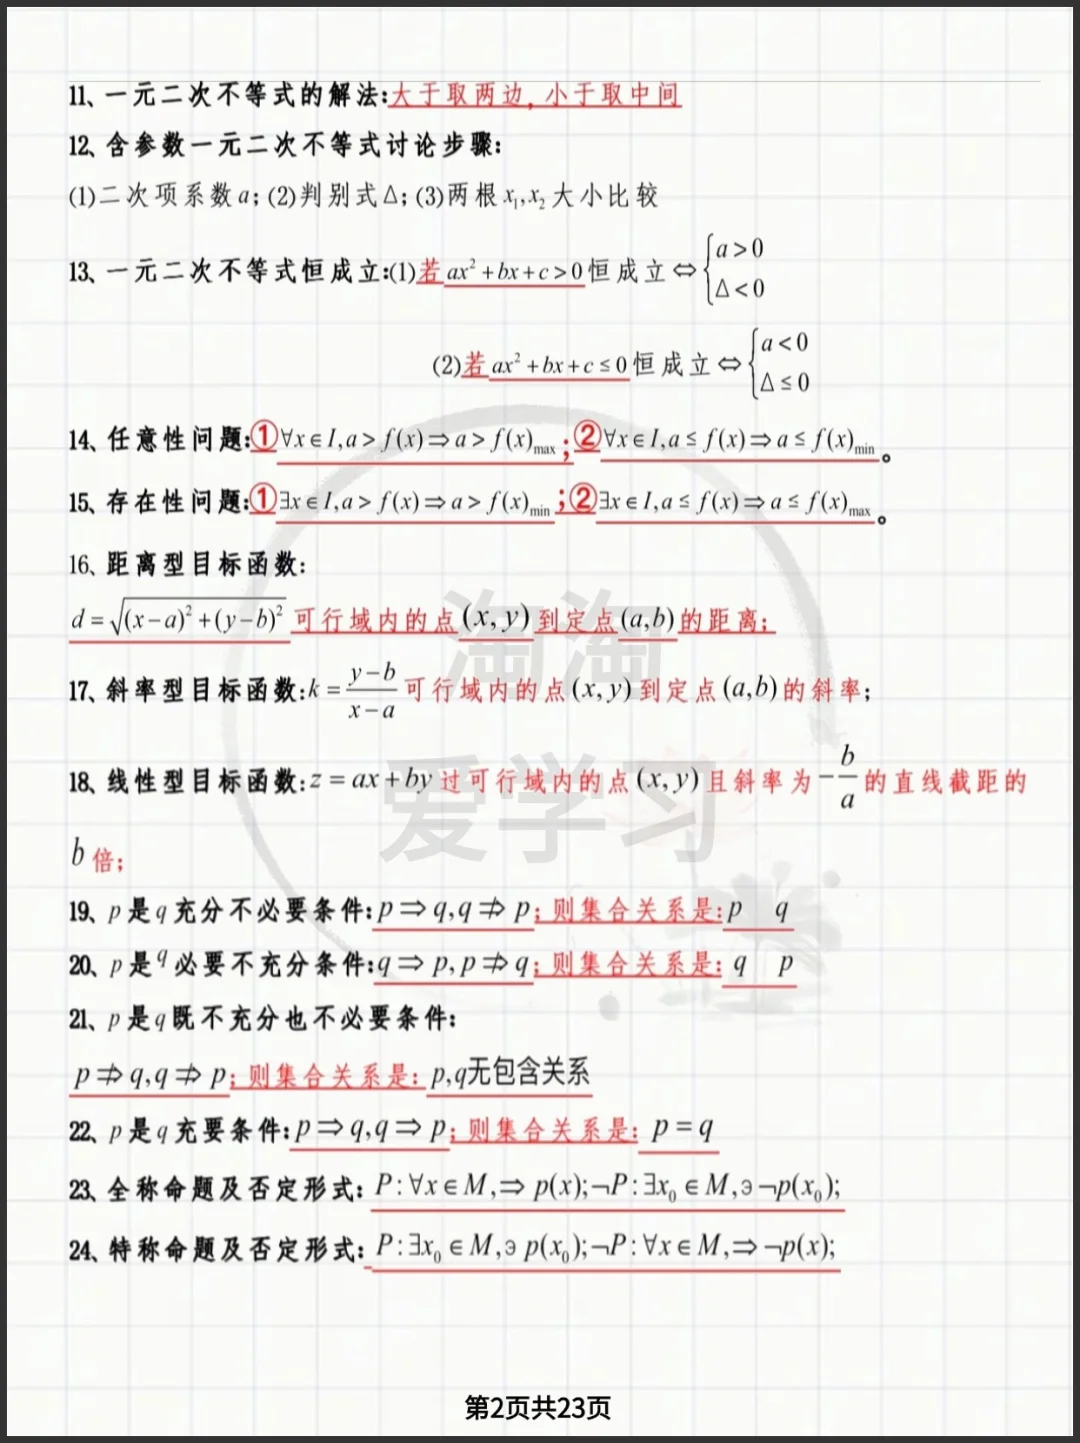 11、一元二次不等式的解法:大于取两边,小于取中间
12、含参数一元二次不等式讨论步骤:
(1)二次项系数a;(2)判别式Δ;(3)两根x₁,x₂大小比较
13、一元二次不等式恒成立:(1)若ax²+bx+c>0恒成立⇔{a>0 Δ<0
(2)若ax²+bx+c≤0恒成立⇔{a<0 Δ≤0
14、任意性问题:①∀x∈I,a>f(x)⇒a>f(x)max;②∀x∈I,a≤f(x)⇒a≤f(x)min。
15、存在性问题:①∃x∈I,a>f(x)⇒a>f(x)min;②∃x∈I,a≤f(x)⇒a≤f(x)max。
16、距离型目标函数:
d=√((x-a)²+(y-b)²)可行域内的点(x,y)到定点(a,b)的距离;
17、斜率型目标函数:k=(y-b)/(x-a)可行域内的点(x,y)到定点(a,b)的斜率;
18、线性型目标函数:z=ax+by过可行域内的点(x,y)且斜率为-b/a的直线截距的
b倍;
19、p是q充分不必要条件:p⇒q,q⇏p;则集合关系是:p q
20、p是q必要不充分条件:q⇒p,p⇏q;则集合关系是:q p
21、p是q既不充分也不必要条件:
p⇏q,q⇏p;则集合关系是:p,q无包含关系
22、p是q充要条件:p⇒q,q⇒p;则集合关系是:p=q
23、全称命题及否定形式:P:∀x∈M,⇒p(x);¬P:∃x₀∈M,∍¬p(x₀);
24、特称命题及否定形式:P:∃x₀∈M,∍p(x₀);¬P:∀x∈M,⇒¬p(x);
淘淘
爱学习
第2页共23页